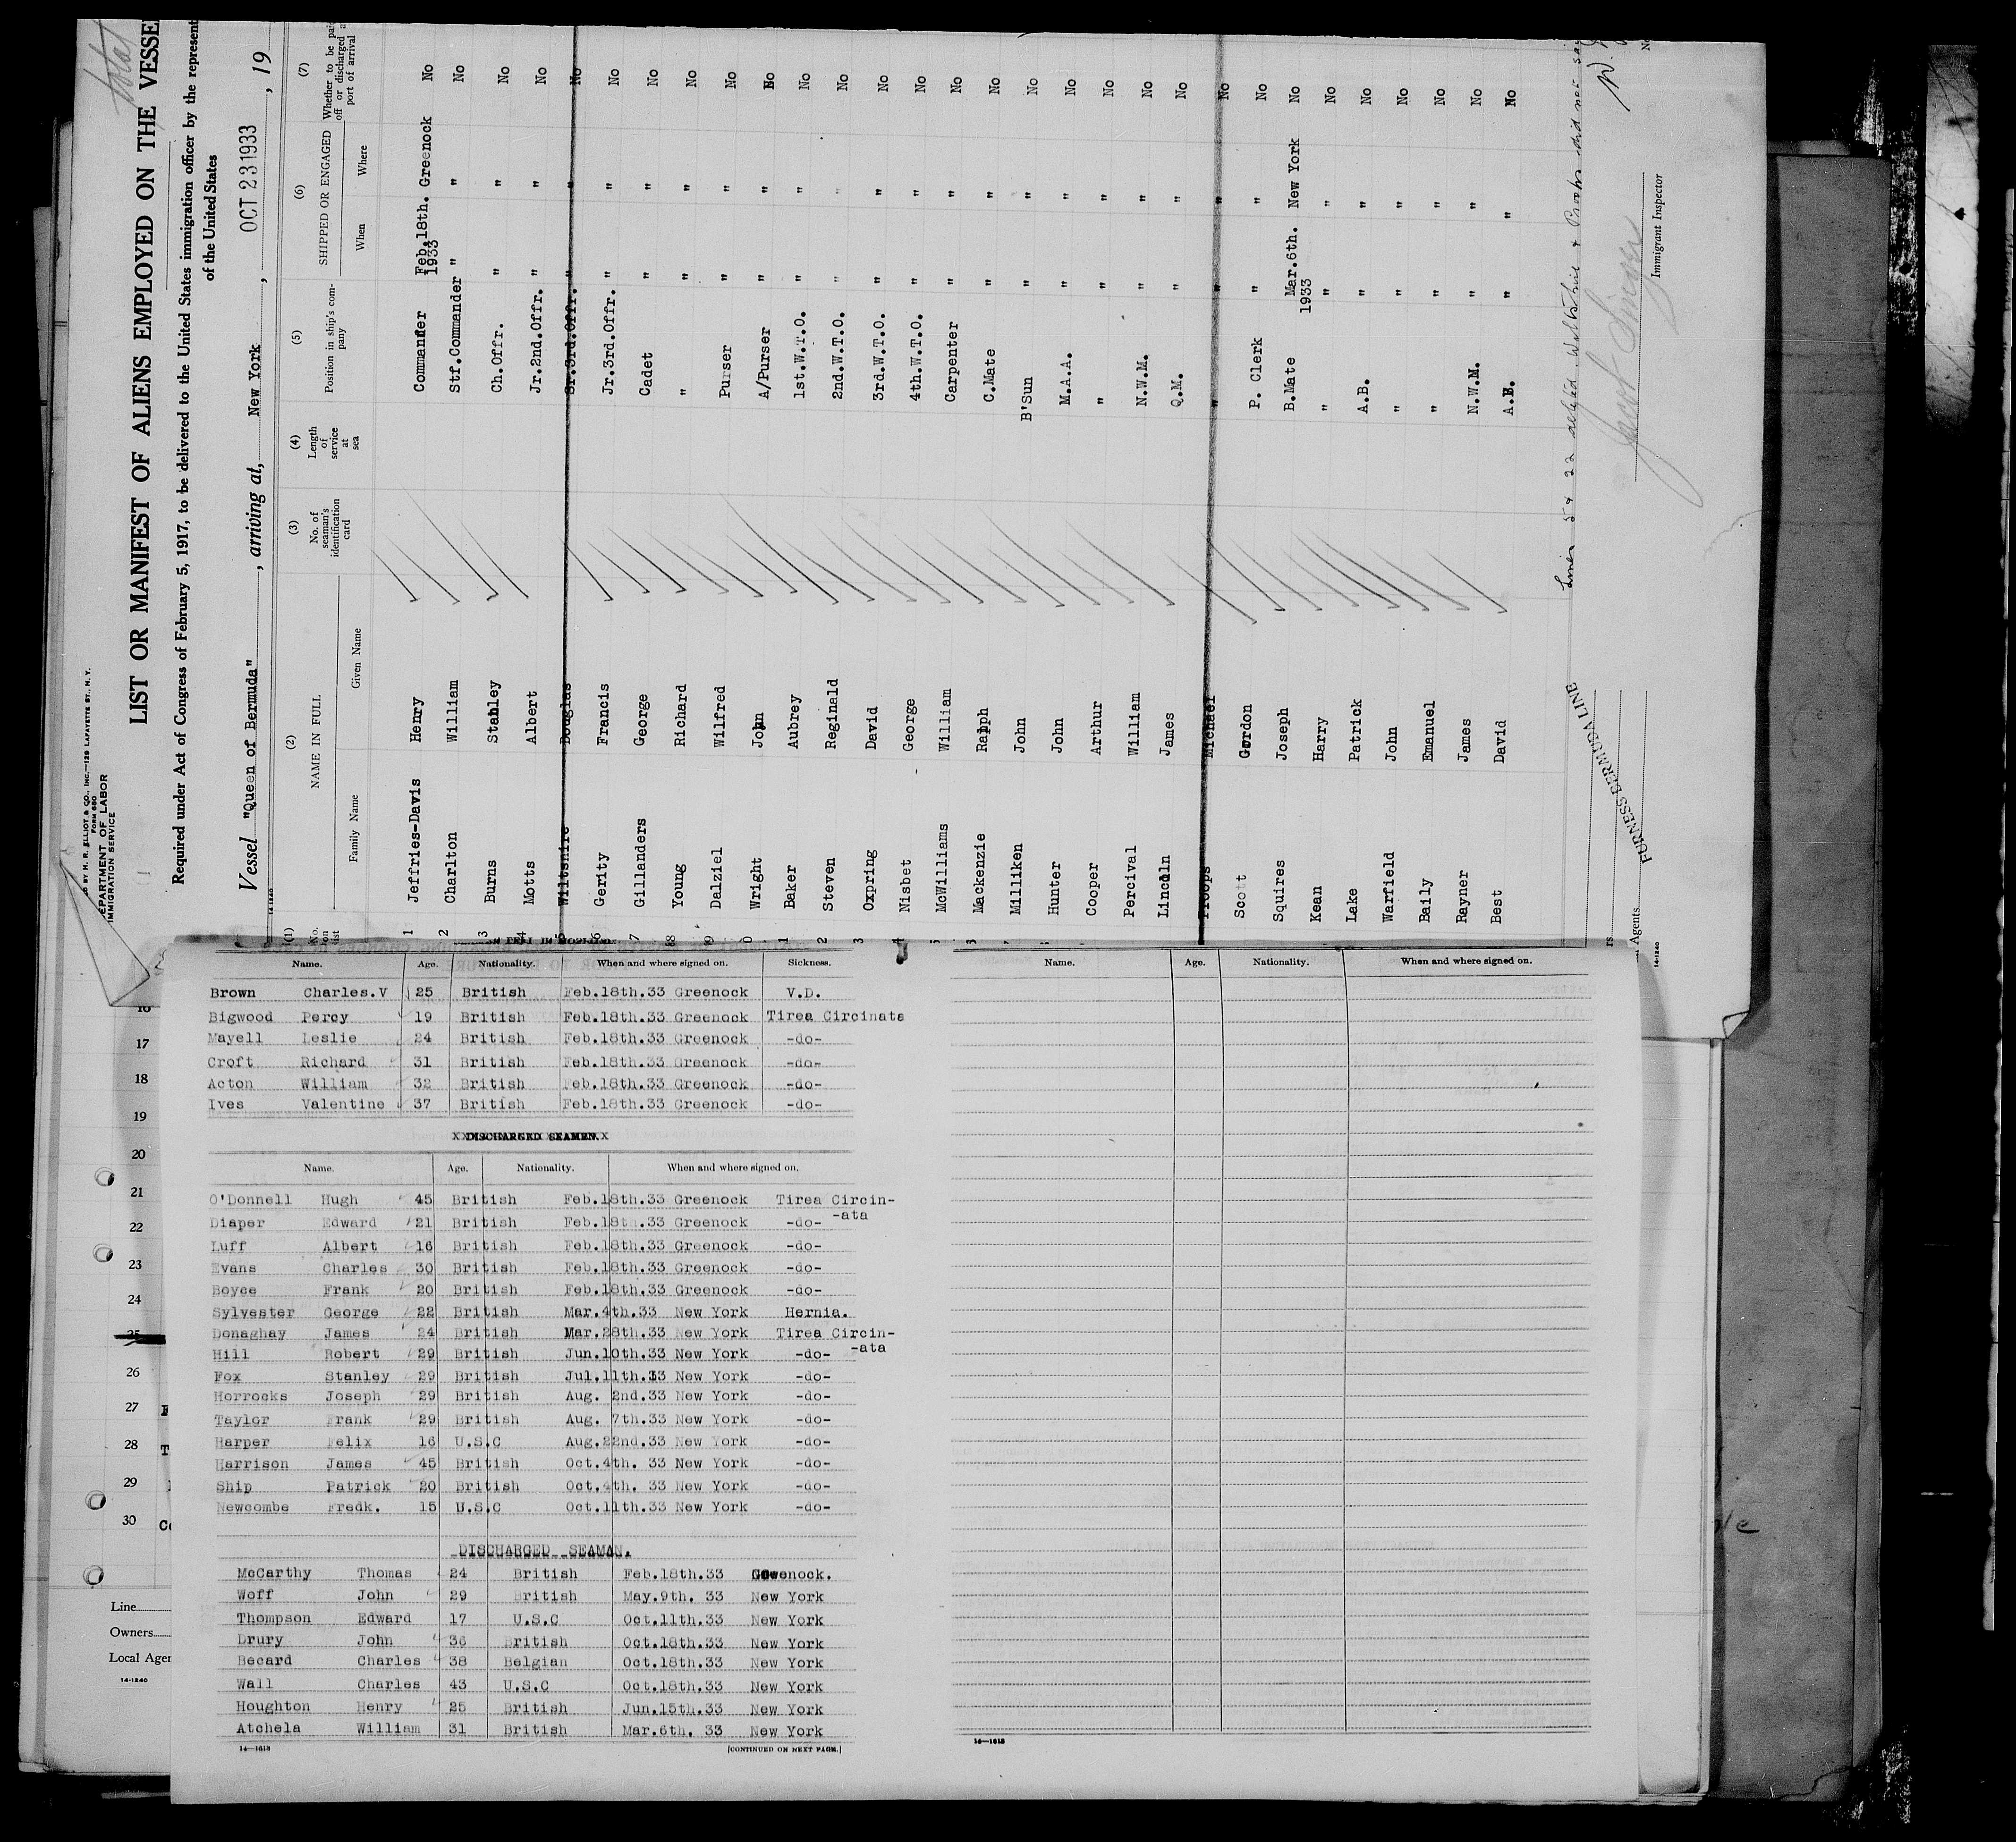 total
D BY H. R. ELLIOT & CO., INC.—129 LAFAYETTE ST., N. Y.
FORM 680
EPARTMENT OF LABOR
IMMIGRATION SERVICE
LIST OR MANIFEST OF ALIENS EMPLOYED ON THE VESSE
Required under Act of Congress of February 5, 1917, to be delivered to the United States immigration officer by the represent
of the United States
Vessel "Queen of Bermuda", arriving at, New York, OCT 23 1933, 19
14-1240
(1) (2) (3) (4) (5) (6) (7)
No. on list NAME IN FULL No. of seaman's identification card Length of service at sea Position in ship's company SHIPPED OR ENGAGED Whether to be paid off or discharged at port of arrival
Family Name Given Name When Where
1 Jeffries-Davis Henry Commander Feb.18th. 1933 Greenock No
2 Charlton William Stf.Commander " " No
3 Burns Stanley Ch.Offr. " " No
4 Motts Albert Jr.2nd.Offr. " " No
5 Wiltshire Douglas Sr.3rd.Offr. " " No
6 Gerity Francis Jr.3rd.Offr. " " No
7 Gillanders George Cadet " " No
8 Young Richard " " " No
9 Dalziel Wilfred Purser " " No
0 Wright John A/Purser " " No
1 Baker Aubrey 1st.W.T.O. " " No
2 Steven Reginald 2nd.W.T.O. " " No
3 Oxpring David 3rd.W.T.O. " " No
4 Nisbet George 4th.W.T.O. " " No
McWilliams William Carpenter " " No
Mackenzie Ralph C.Mate " " No
Milliken John B'Sun " " No
Hunter John M.A.A. " " No
Cooper Arthur " " " No
Percival William N.W.M. " " No
Lincoln James Q.M. " " No
Troops Michael " " " No
Scott Gordon P. Clerk " " No
Squires Joseph B.Mate Mar.6th. 1933 New York No
Kean Harry " " " No
Lake Patrick A.B. " " No
Warfield John " " " No
Baily Emanuel " " " No
Rayner James N.W.M. " " No
Best David A.B. " " No
Lines 5 & 22 deleted Wiltshire & Proops did not sai
Jacob Singer
Immigrant Inspector
FURNESS BERMUDA LINE
rs
Agents
14-1240
Name. Age. Nationality. When and where signed on. Sickness.
Brown Charles.V 25 British Feb.18th.33 Greenock V.D.
Bigwood Percy 19 British Feb.18th.33 Greenock Tirea Circinata
Mayell Leslie 24 British Feb.18th.33 Greenock -do-
Croft Richard 31 British Feb.18th.33 Greenock -do-
Acton William 32 British Feb.18th.33 Greenock -do-
Ives Valentine 37 British Feb.18th.33 Greenock -do-
DISCHARGED SEAMEN.
Name. Age. Nationality. When and where signed on.
O'Donnell Hugh 45 British Feb.18th.33 Greenock Tirea Circin-
-ata
Diaper Edward 21 British Feb.18th.33 Greenock -do-
Luff Albert 16 British Feb.18th.33 Greenock -do-
Evans Charles 30 British Feb.18th.33 Greenock -do-
Boyce Frank 20 British Feb.18th.33 Greenock -do-
Sylvester George 22 British Mar.4th.33 New York Hernia.
Donaghay James 24 British Mar.28th.33 New York Tirea Circin-
-ata
Hill Robert 29 British Jun.10th.33 New York -do-
Fox Stanley 29 British Jul.11th.33 New York -do-
Horrocks Joseph 29 British Aug. 2nd.33 New York -do-
Taylor Frank 29 British Aug. 7th.33 New York -do-
Harper Felix 16 U.S.C Aug.22nd.33 New York -do-
Harrison James 45 British Oct.4th. 33 New York -do-
Ship Patrick 20 British Oct.4th. 33 New York -do-
Newcombe Fredk. 15 U.S.C Oct.11th.33 New York -do-
DISCHARGED SEAMAN.
McCarthy Thomas 24 British Feb.18th.33 Greenock.
Woff John 29 British May.9th. 33 New York
Thompson Edward 17 U.S.C Oct.11th.33 New York
Drury John 36 British Oct.18th.33 New York
Becard Charles 38 Belgian Oct.18th.33 New York
Wall Charles 43 U.S.C Oct.18th.33 New York
Houghton Henry 25 British Jun.15th.33 New York
Atchela William 31 British Mar.6th. 33 New York
14—1613
[CONTINUED ON NEXT PAGE.]
Name. Age. Nationality. When and where signed on.
14—1613
16
17
18
19
20
21
22
23
24
25
26
27
28
29
30
Line
Owners
Local Agen
14-1240